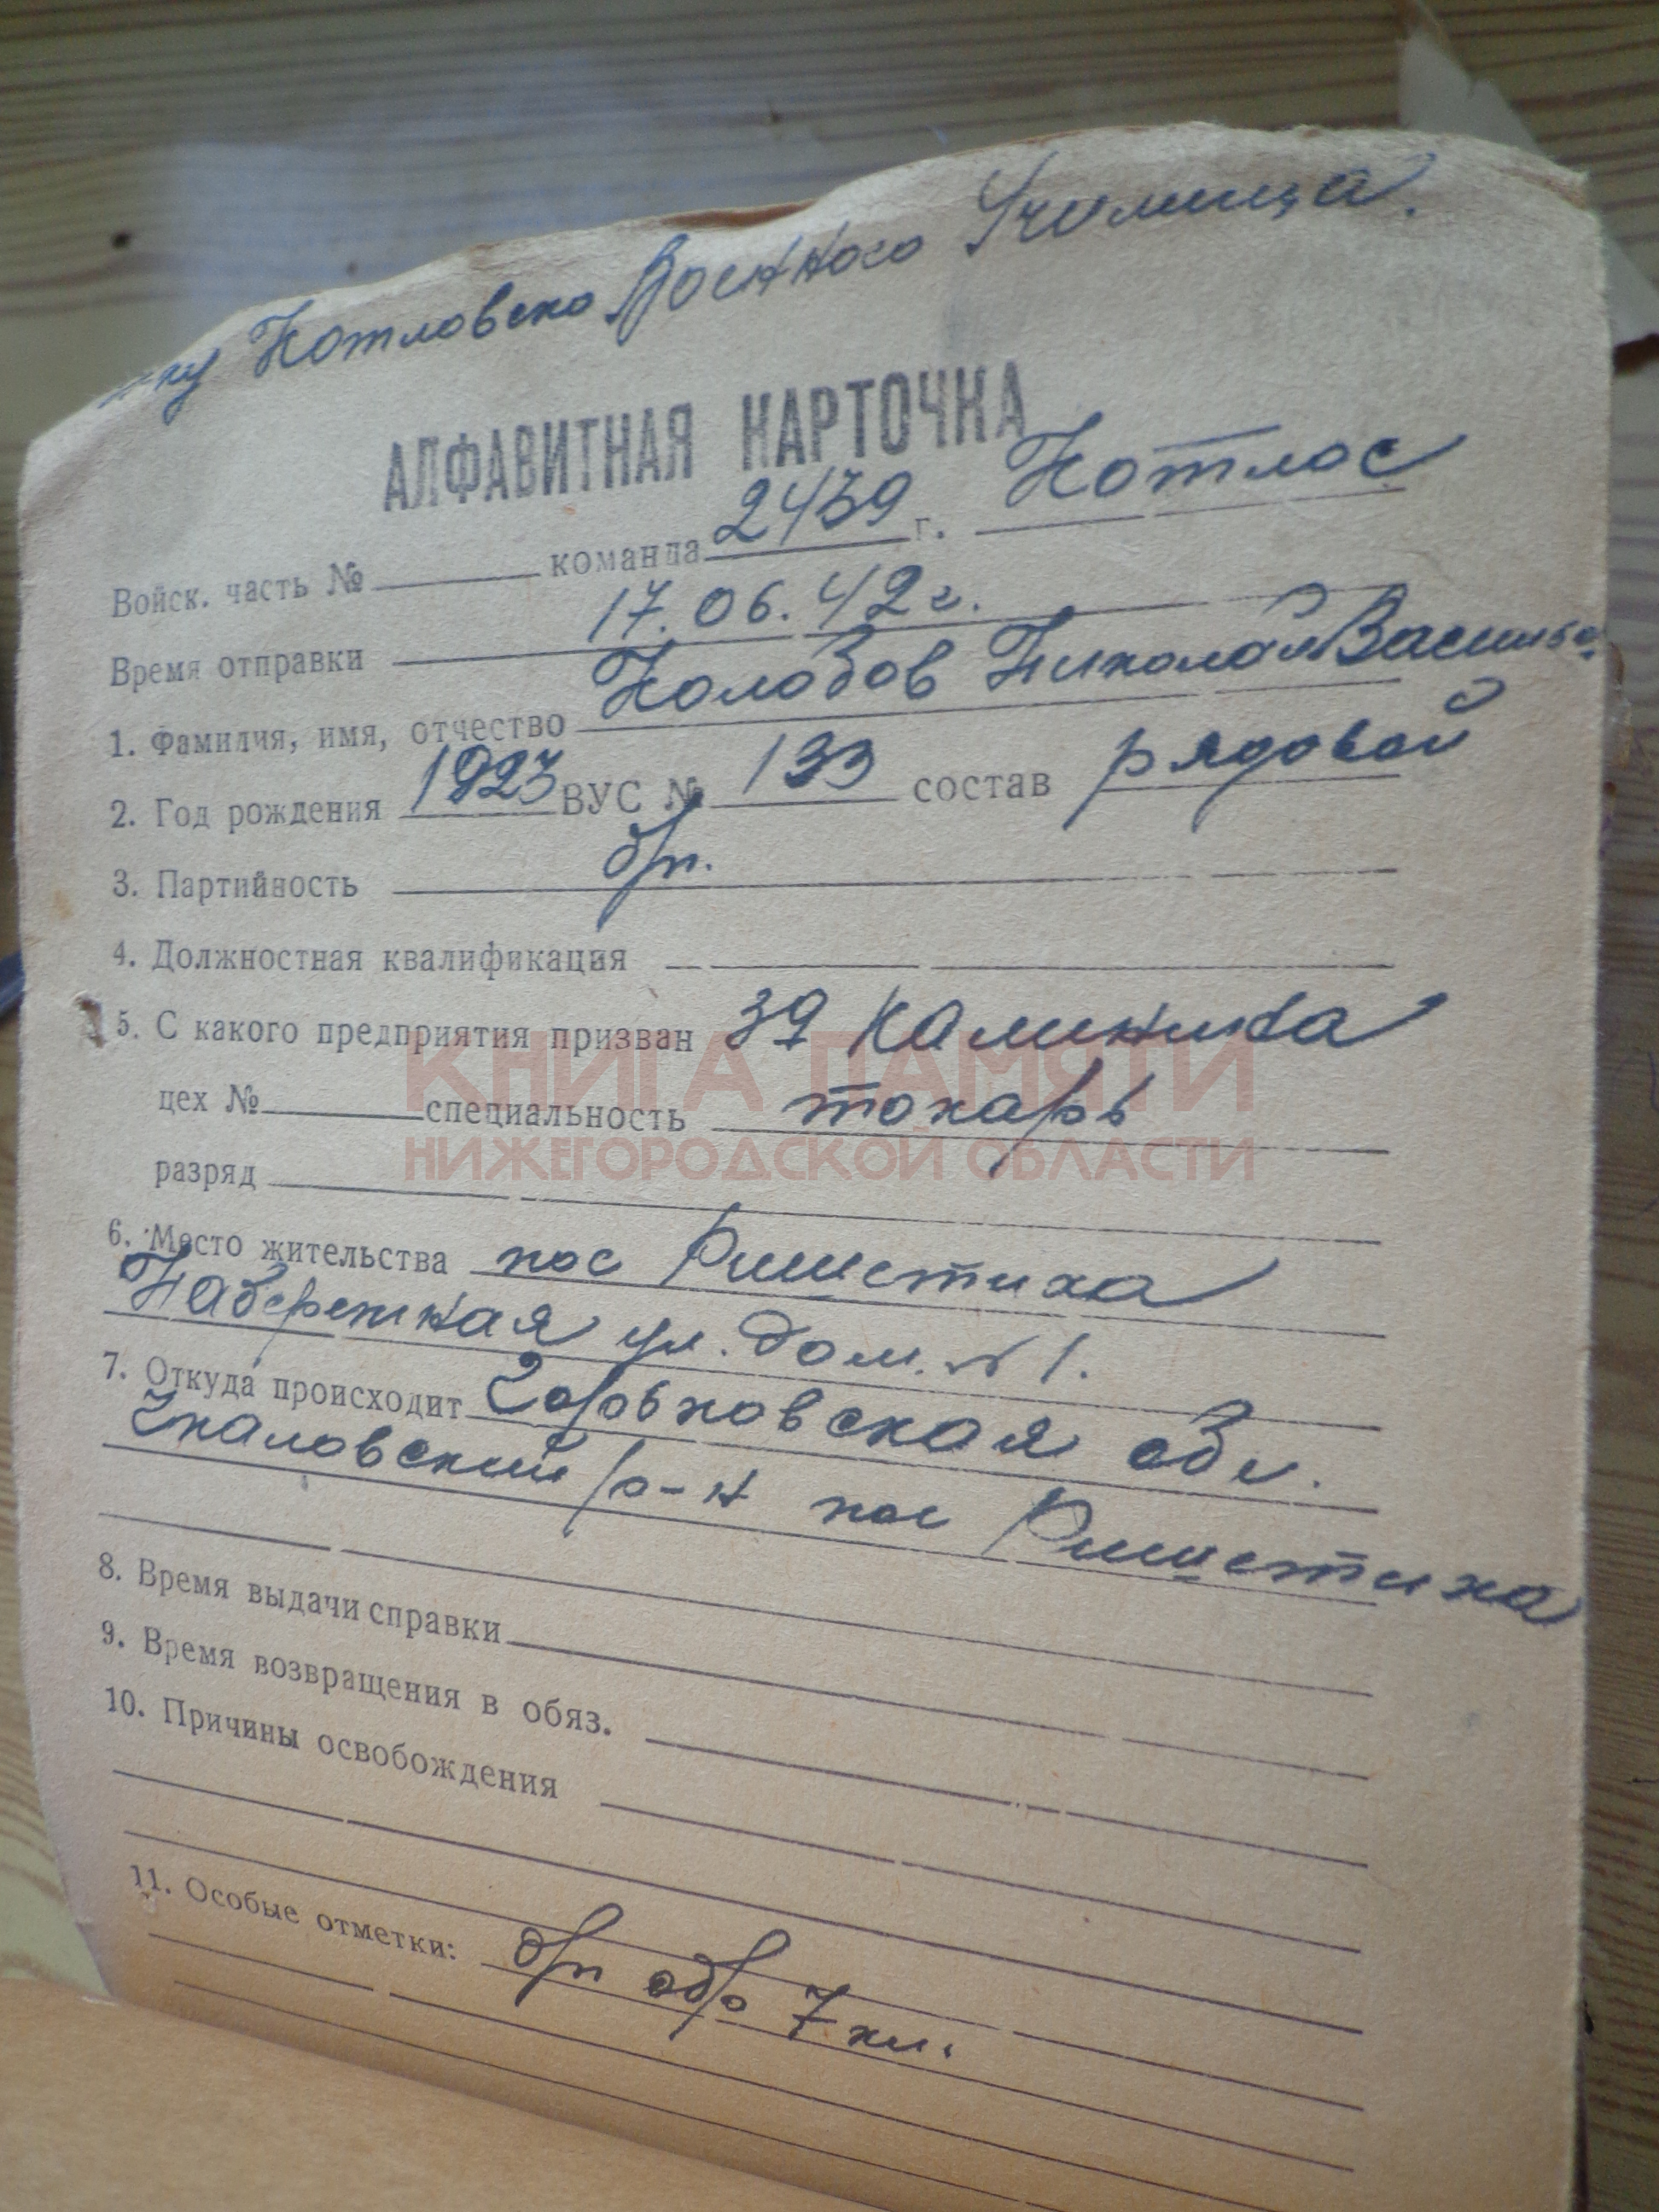 Котловско Военного Училища.
АЛФАВИТНАЯ КАРТОЧКА
Войск. часть № команда 2439 г. Котлас
Время отправки 17.06.42 г.
1. Фамилия, имя, отчество Колобов Николай Василье.
2. Год рождения 1923 ВУС № 133 состав рядовой
3. Партийность б/п.
4. Должностная квалификация
5. С какого предприятия призван 39 Калинина
КНИГА ПАМЯТИ
цех № специальность токарь
НИЖЕГОРОДСКОЙ ОБЛАСТИ
разряд
6. Место жительства пос Риштиха
Набережная ул. дом. № 1.
7. Откуда происходит Горьковская обл.
Чкаловский р-н пос Риштиха
8. Время выдачи справки
9. Время возвращения в обяз.
10. Причины освобождения
11. Особые отметки: б/п обр 7 кл.